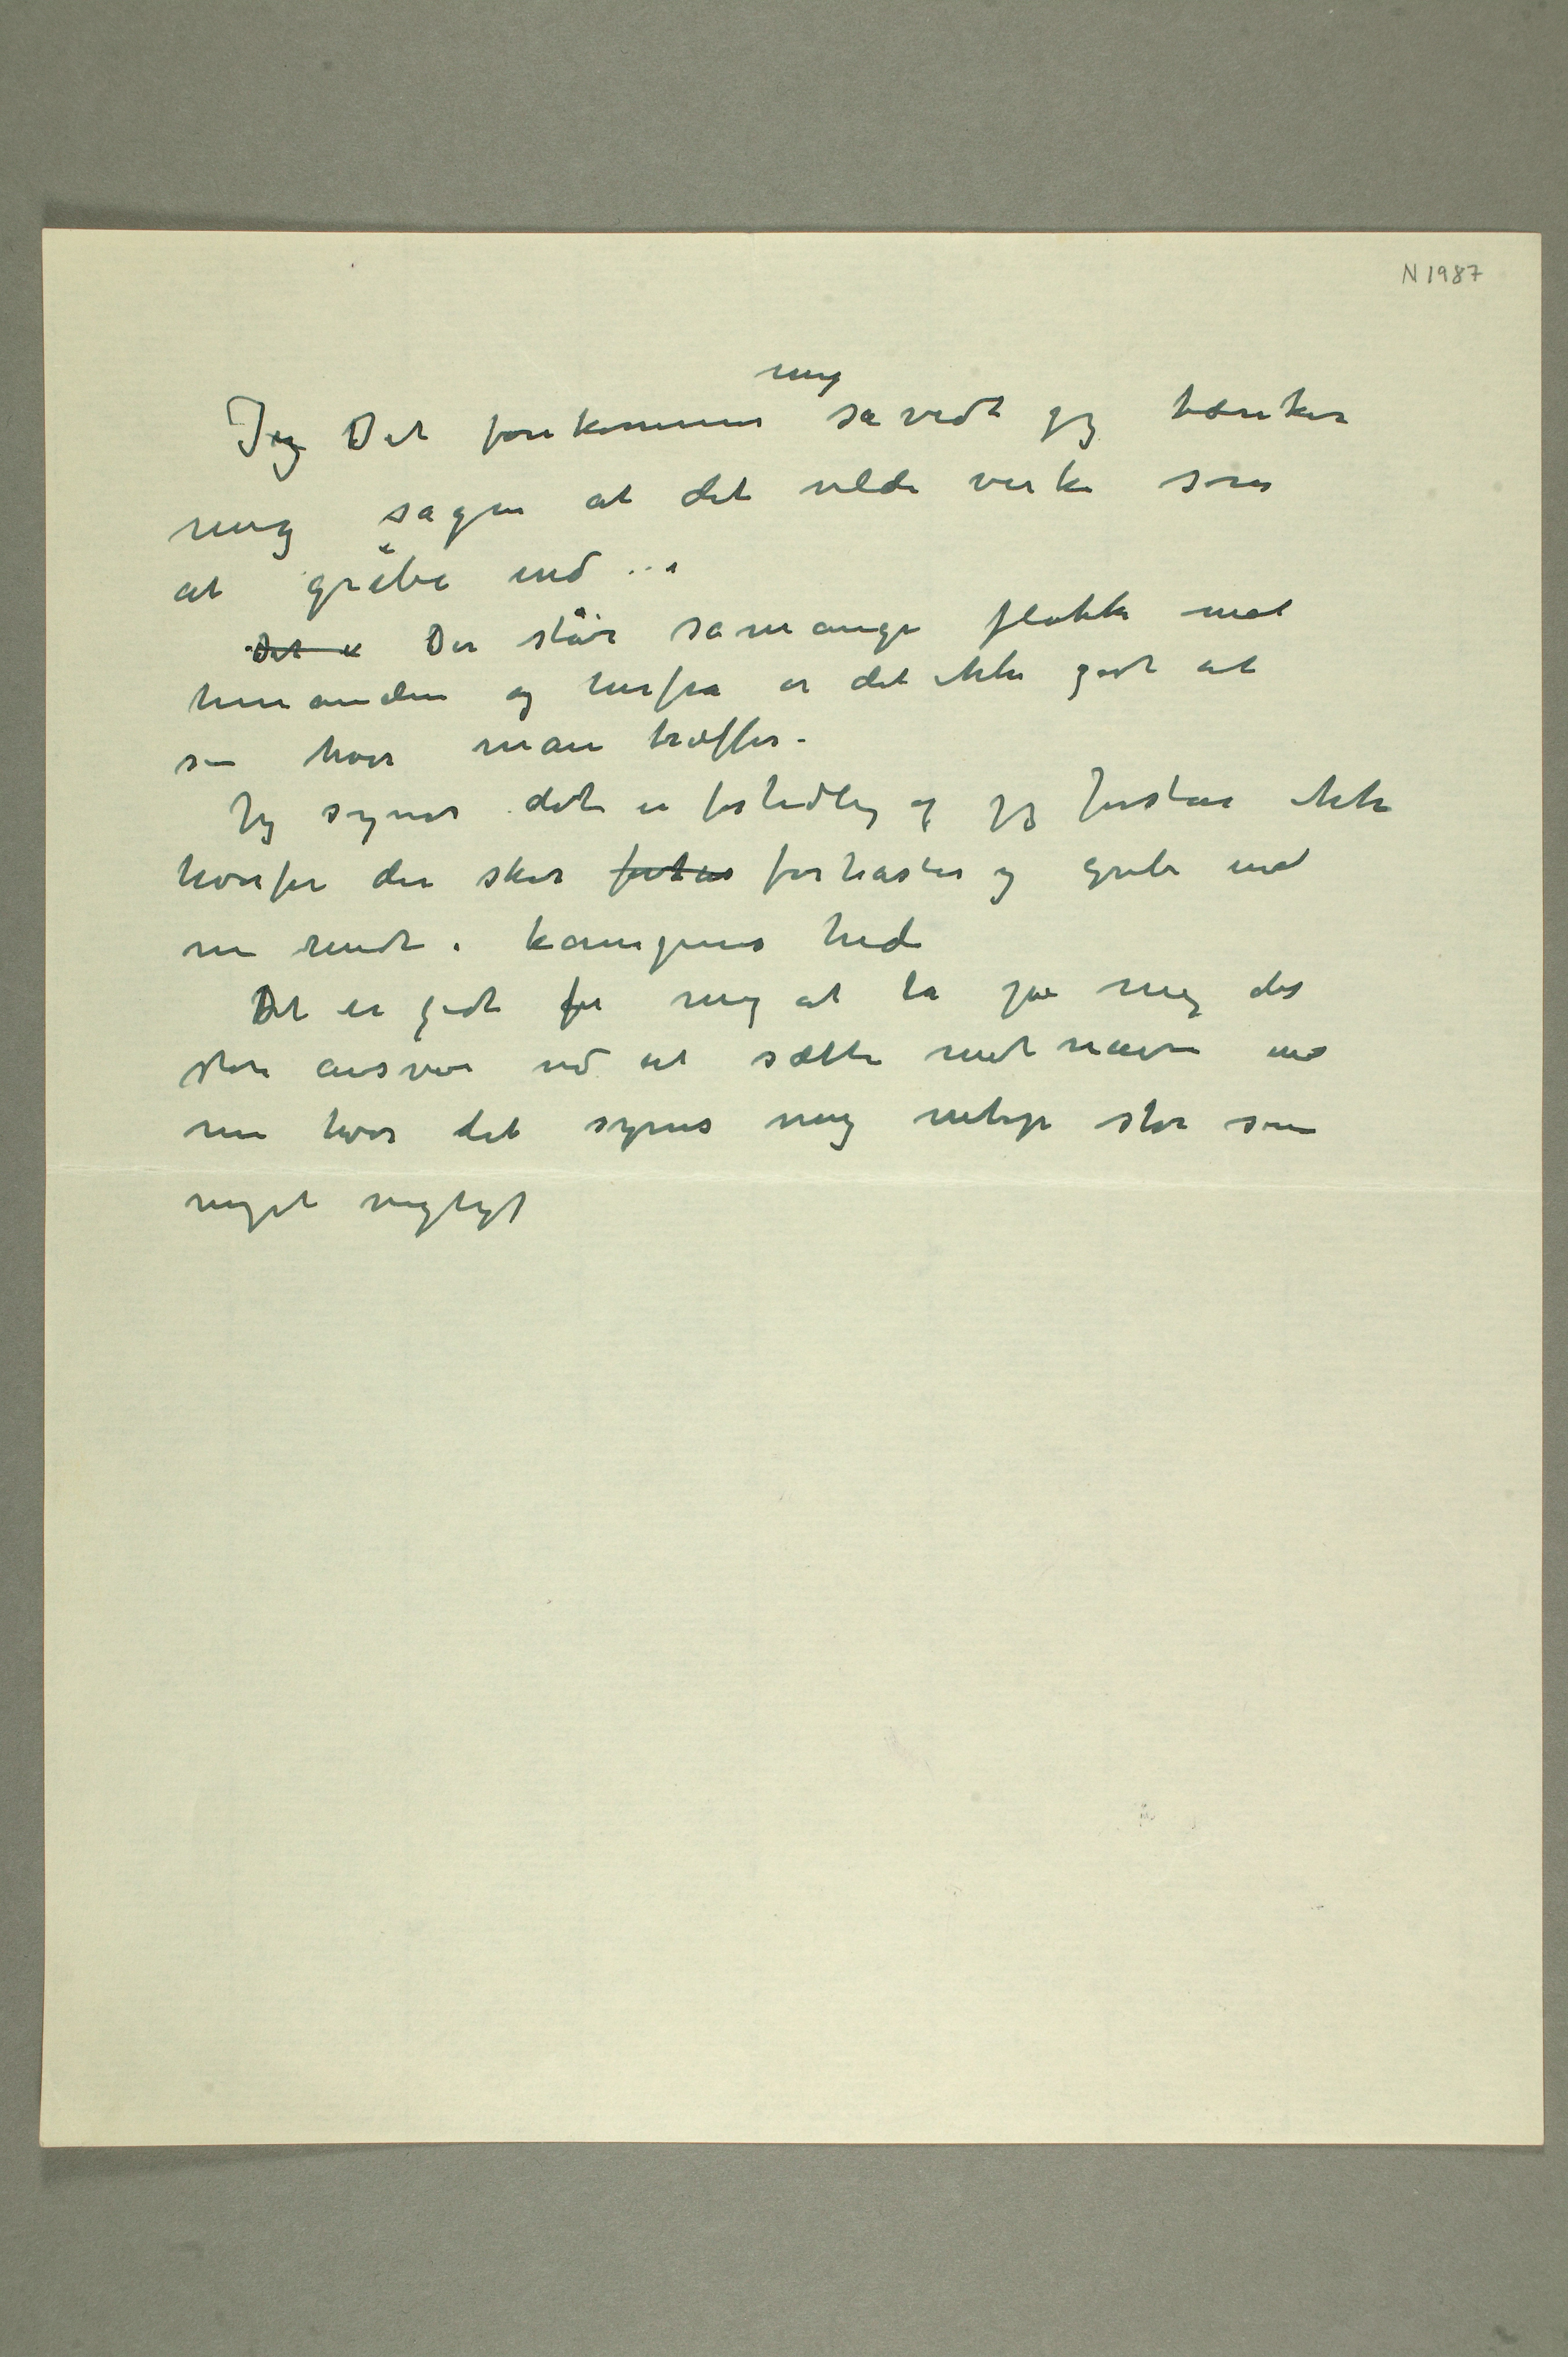 N 1987
mig
Jeg Det forekommer såvidt jeg tænker
mig sagen at det vilde virke som
at gribe ind ...
Det e Der står så mange flokke mod
hinanden og herfra er det ikke godt at
se hvor man træffer.
Jeg synes dette er for tidlig og jeg forstår ikke
hvorfor der skor forhas forhastes og gribe ind
nu midt i kampens hede
Det er godt for mig at ta på mig det
store ansvar ved at sætte mit navn ind
nu hvor det synes mig netop står som
noget vigtigt